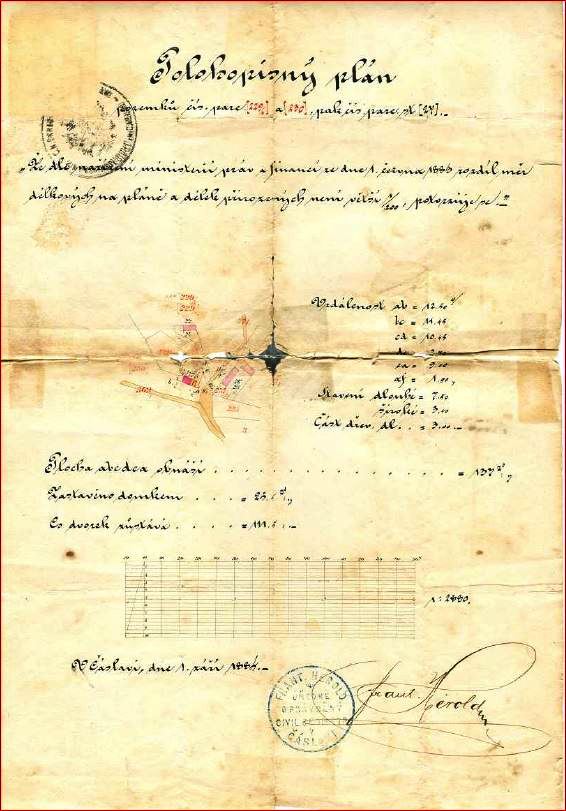 Polohopisný plán
pozemků čís. parc. [229] a [230], pak čís. parc. st. [27].
"Že dle nařízení ministerií práv a financí ze dne 1. června 1883 rozdíl měr
délkových na pláně a délek přirozených není větší 1/200, potvrzuje se."
Vzdálenost ab = 12.50
bc = 11.45
cd = 10.45
ea = 9.00
af = 1.90
Stavení dlouhé = 7.80
široké = 3.20
Část dřev. dl. . . = 3.00.-
Plocha abcdea obnáší . . . . . . . . . . . . . . . . = 133
Zastavéno domkem . . . . =
Co dvorek zůstává . . . . = 111.
1:2880.
V Čáslavi, dne 1. září 1884.-
FRANT. HEROLD
ÚŘEDNĚ
OPRÁVNĚNÝ
CIVIL
V
ČÁSLAVI
Frant. Herold